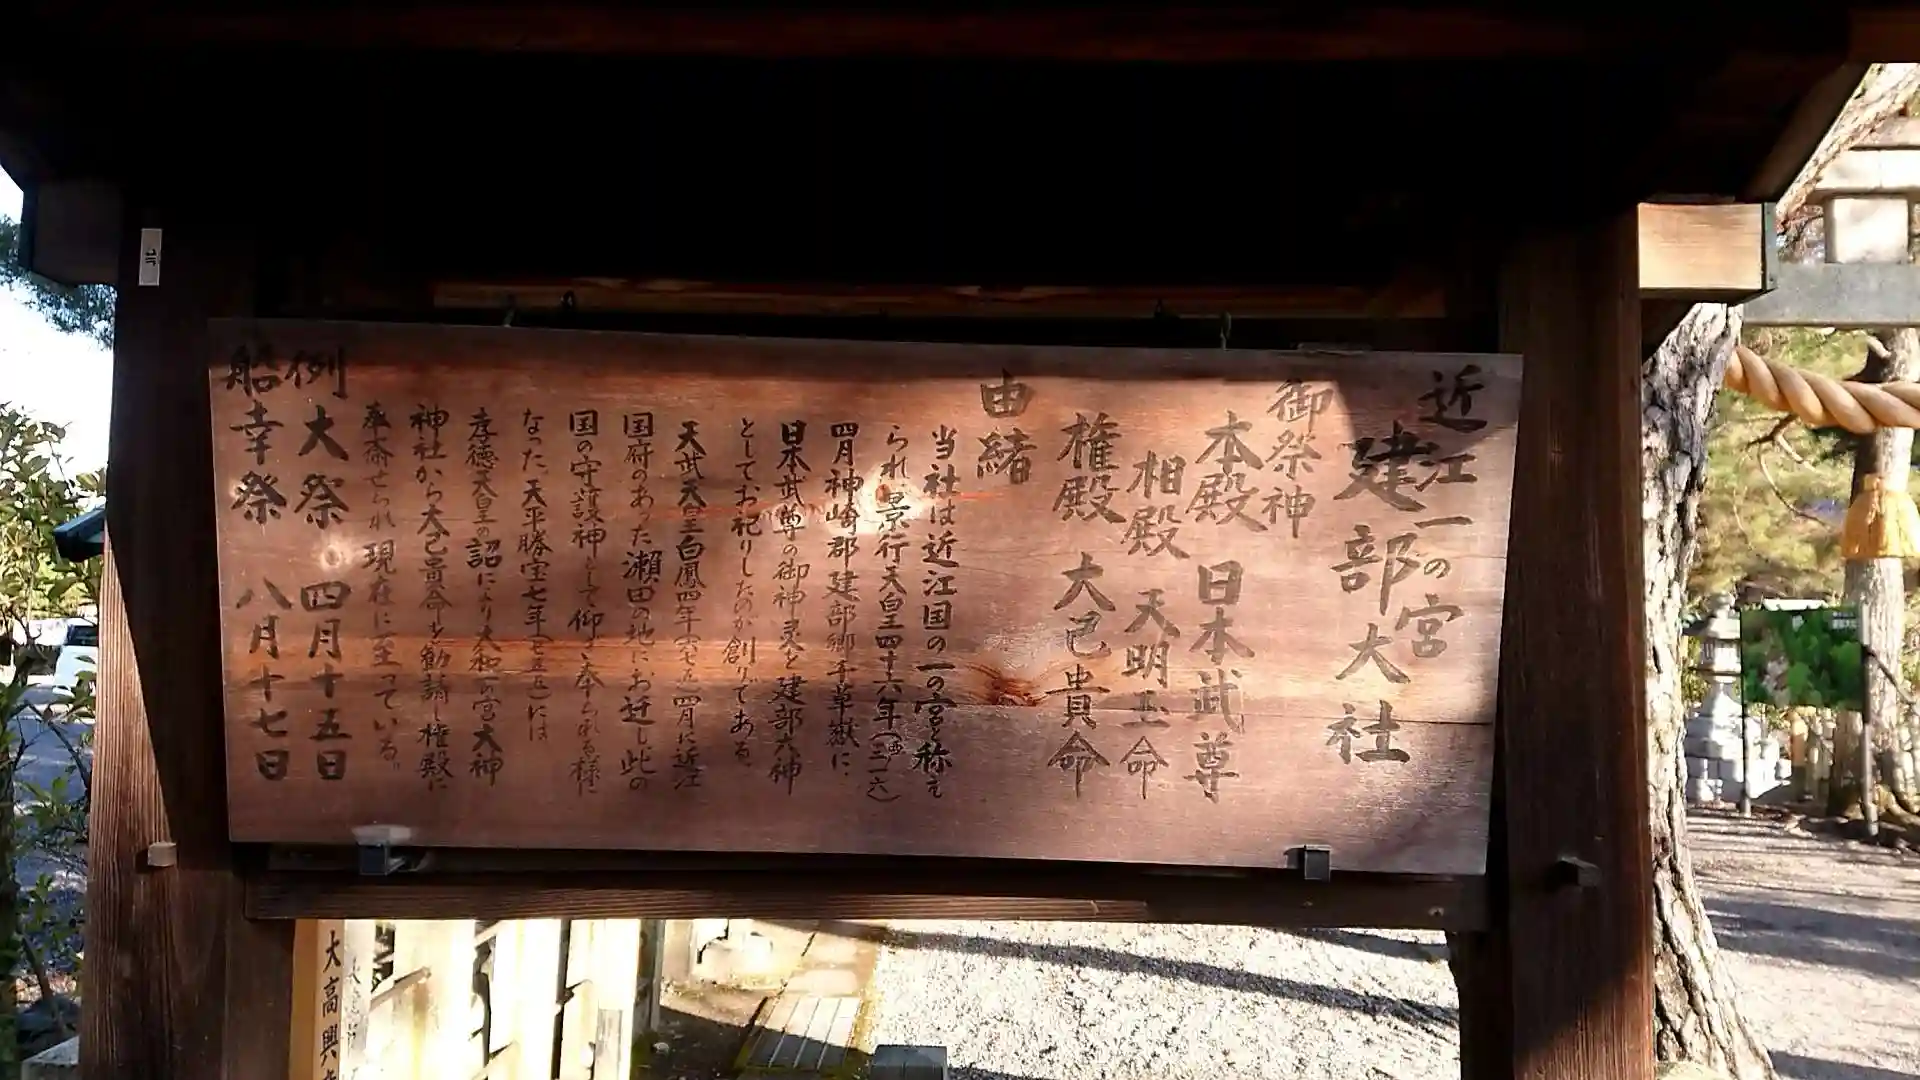 近江一の宮
建部大社
御祭神
本殿 日本武尊
相殿 天明玉命
権殿 大己貴命
由緒
当社は近江国の一の宮と称え
られ景行天皇四十六年(西三一六)
四月神崎郡建部郷千草嶽に、
日本武尊の御神霊を建部大神
としてお祀りしたのが創りである。
天武天皇白鳳四年(六七五)四月に近江
国府のあった瀬田の地にお迁し此の
国の守護神として仰ぎ奉られる様に
なった、天平勝宝七年(七五五)には
孝徳天皇の詔により大和一の宮大神
神社から大己貴命を勧請し権殿に
奉斎せられ現在に至っている。
例大祭 四月十五日
船幸祭 八月十七日
大高興